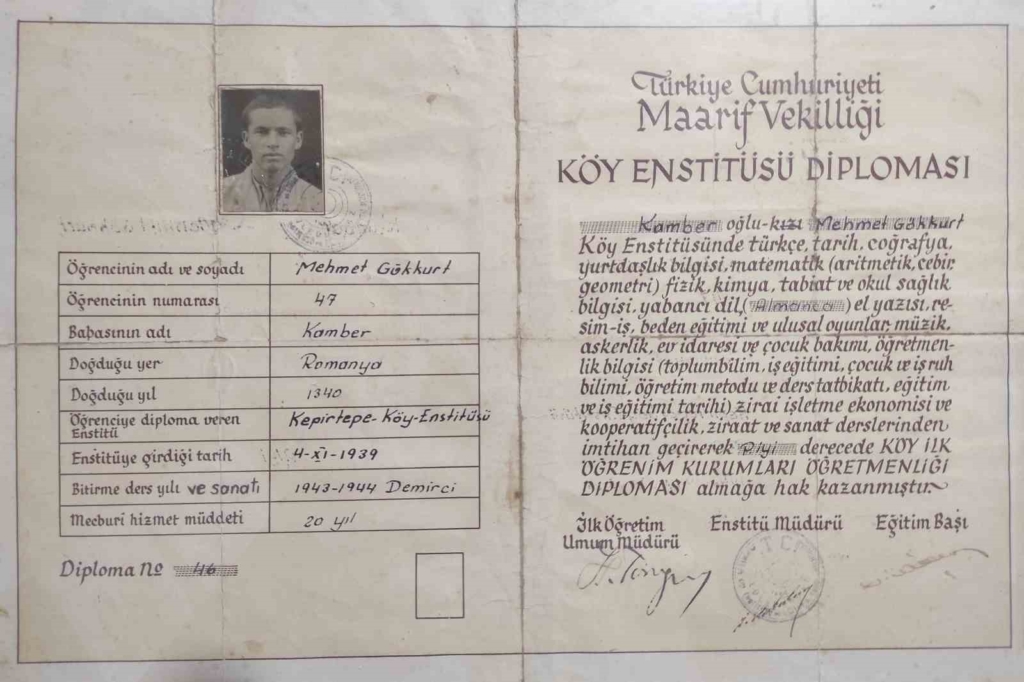 Öğrencinin adı ve soyadı Mehmet Gökkurt
Öğrencinin numarası 47
Babasının adı Kamber
Doğduğu yer Romanya
Doğduğu yıl 1340
Öğrenciye diploma veren Enstitü Kepirtepe-Köy-Enstitüsü
Enstitüye girdiği tarih 4-XI-1939
Bitirme ders yılı ve sanatı 1943-1944 Demirci
Mecburî hizmet müddeti 20 yıl
Diploma No 46
Türkiye Cumhuriyeti
Maarif Vekilliği
KÖY ENSTİTÜSÜ DİPLOMASI
Kamber oğlu-kızı Mehmet Gökkurt
Köy Enstitüsünde türkçe, tarih, coğrafya,
yurtdaşlık bilgisi, matematik (aritmetik, cebir,
geometri) fizik, kimya, tabiat ve okul sağlık
bilgisi, yabancı dil, (Almanca) el yazısı, re-
sim-iş, beden eğitimi ve ulusal oyunlar, müzik,
askerlik, ev idaresi ve çocuk bakımı, öğretmen-
lik bilgisi (toplumbilim, iş eğitimi, çocuk ve iş ruh
bilimi, öğretim metodu ve ders tatbikatı, eğitim
ve iş eğitimi tarihi) zirai işletme ekonomisi ve
kooperatifçilik, ziraat ve sanat derslerinden
imtihan geçirerek P.İyi derecede KÖY İLK
ÖĞRENİM KURUMLARI ÖĞRETMENLİĞİ
DİPLOMASI almağa hak kazanmıştır.
İlk Öğretim Umum Müdürü
Enstitü Müdürü
Eğitim Başı
T C